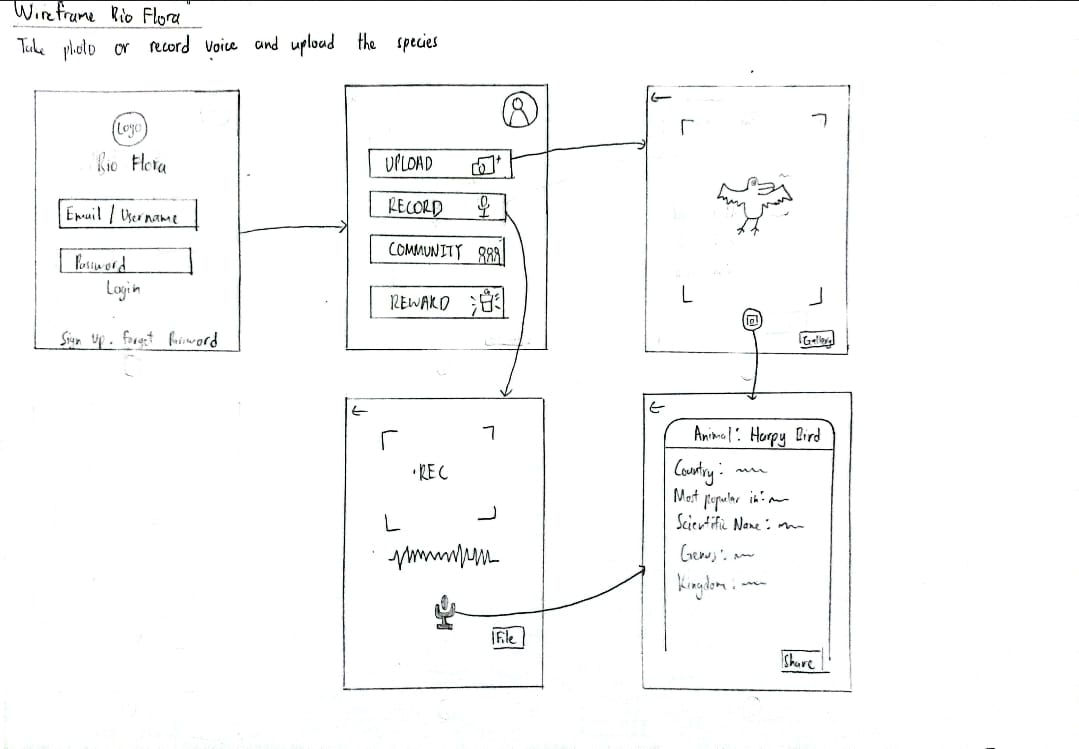 Wireframe Rio Flora"
Take photo or record voice and upload the species
Logo
Rio Flora
Email / Username
Password
Login
Sign Up. Forget Password
UPLOAD
RECORD
COMMUNITY
REWARD
Gallery
REC
File
Animal: Harpy Bird
Country:
Most popular in:
Scientific Name:
Genus:
Kingdom:
Share